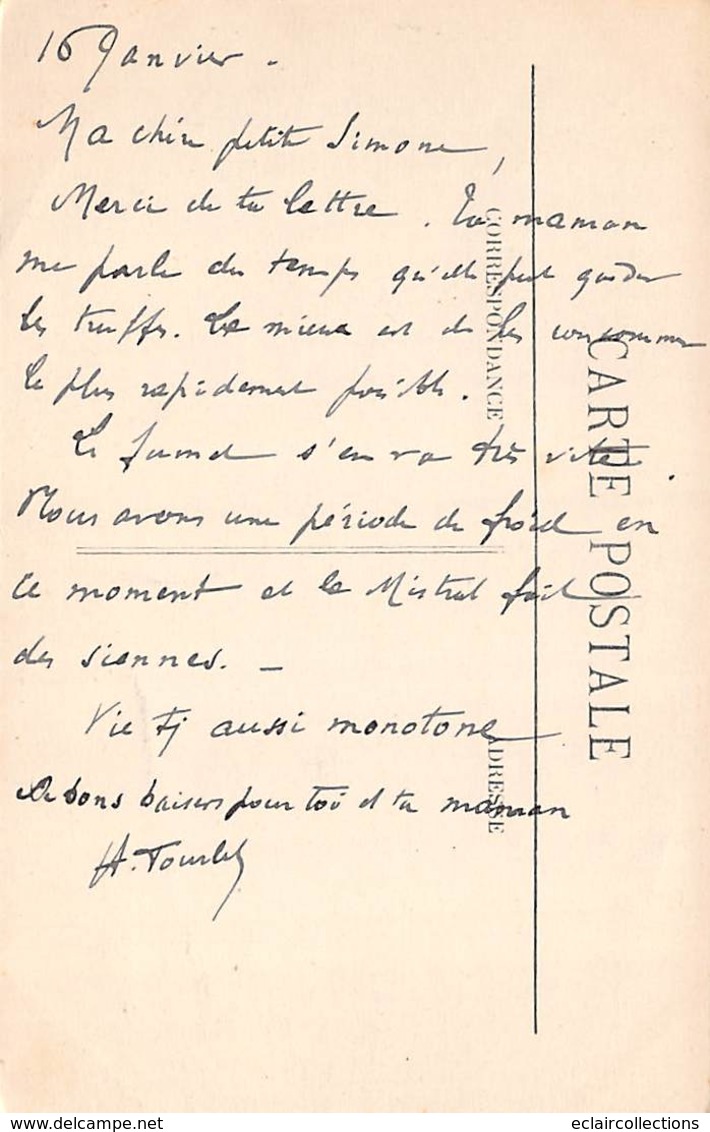 16 Janvier.
Ma chère petite Simone,
Merci de ta lettre. Ta maman
me parle du temps qu'elle peut garder
les truffes. Le mieux est de les consommer
le plus rapidement possible.
Le fumet s'en va très vite.
Nous avons une période de froid en
ce moment et le Mistral fait
des siennes. —
Vie tj aussi monotone
De bons baisers pour toi et ta maman
CORRESPONDANCE
ADRESSE
CARTE POSTALE
www.delcampe.net
eclaircollections